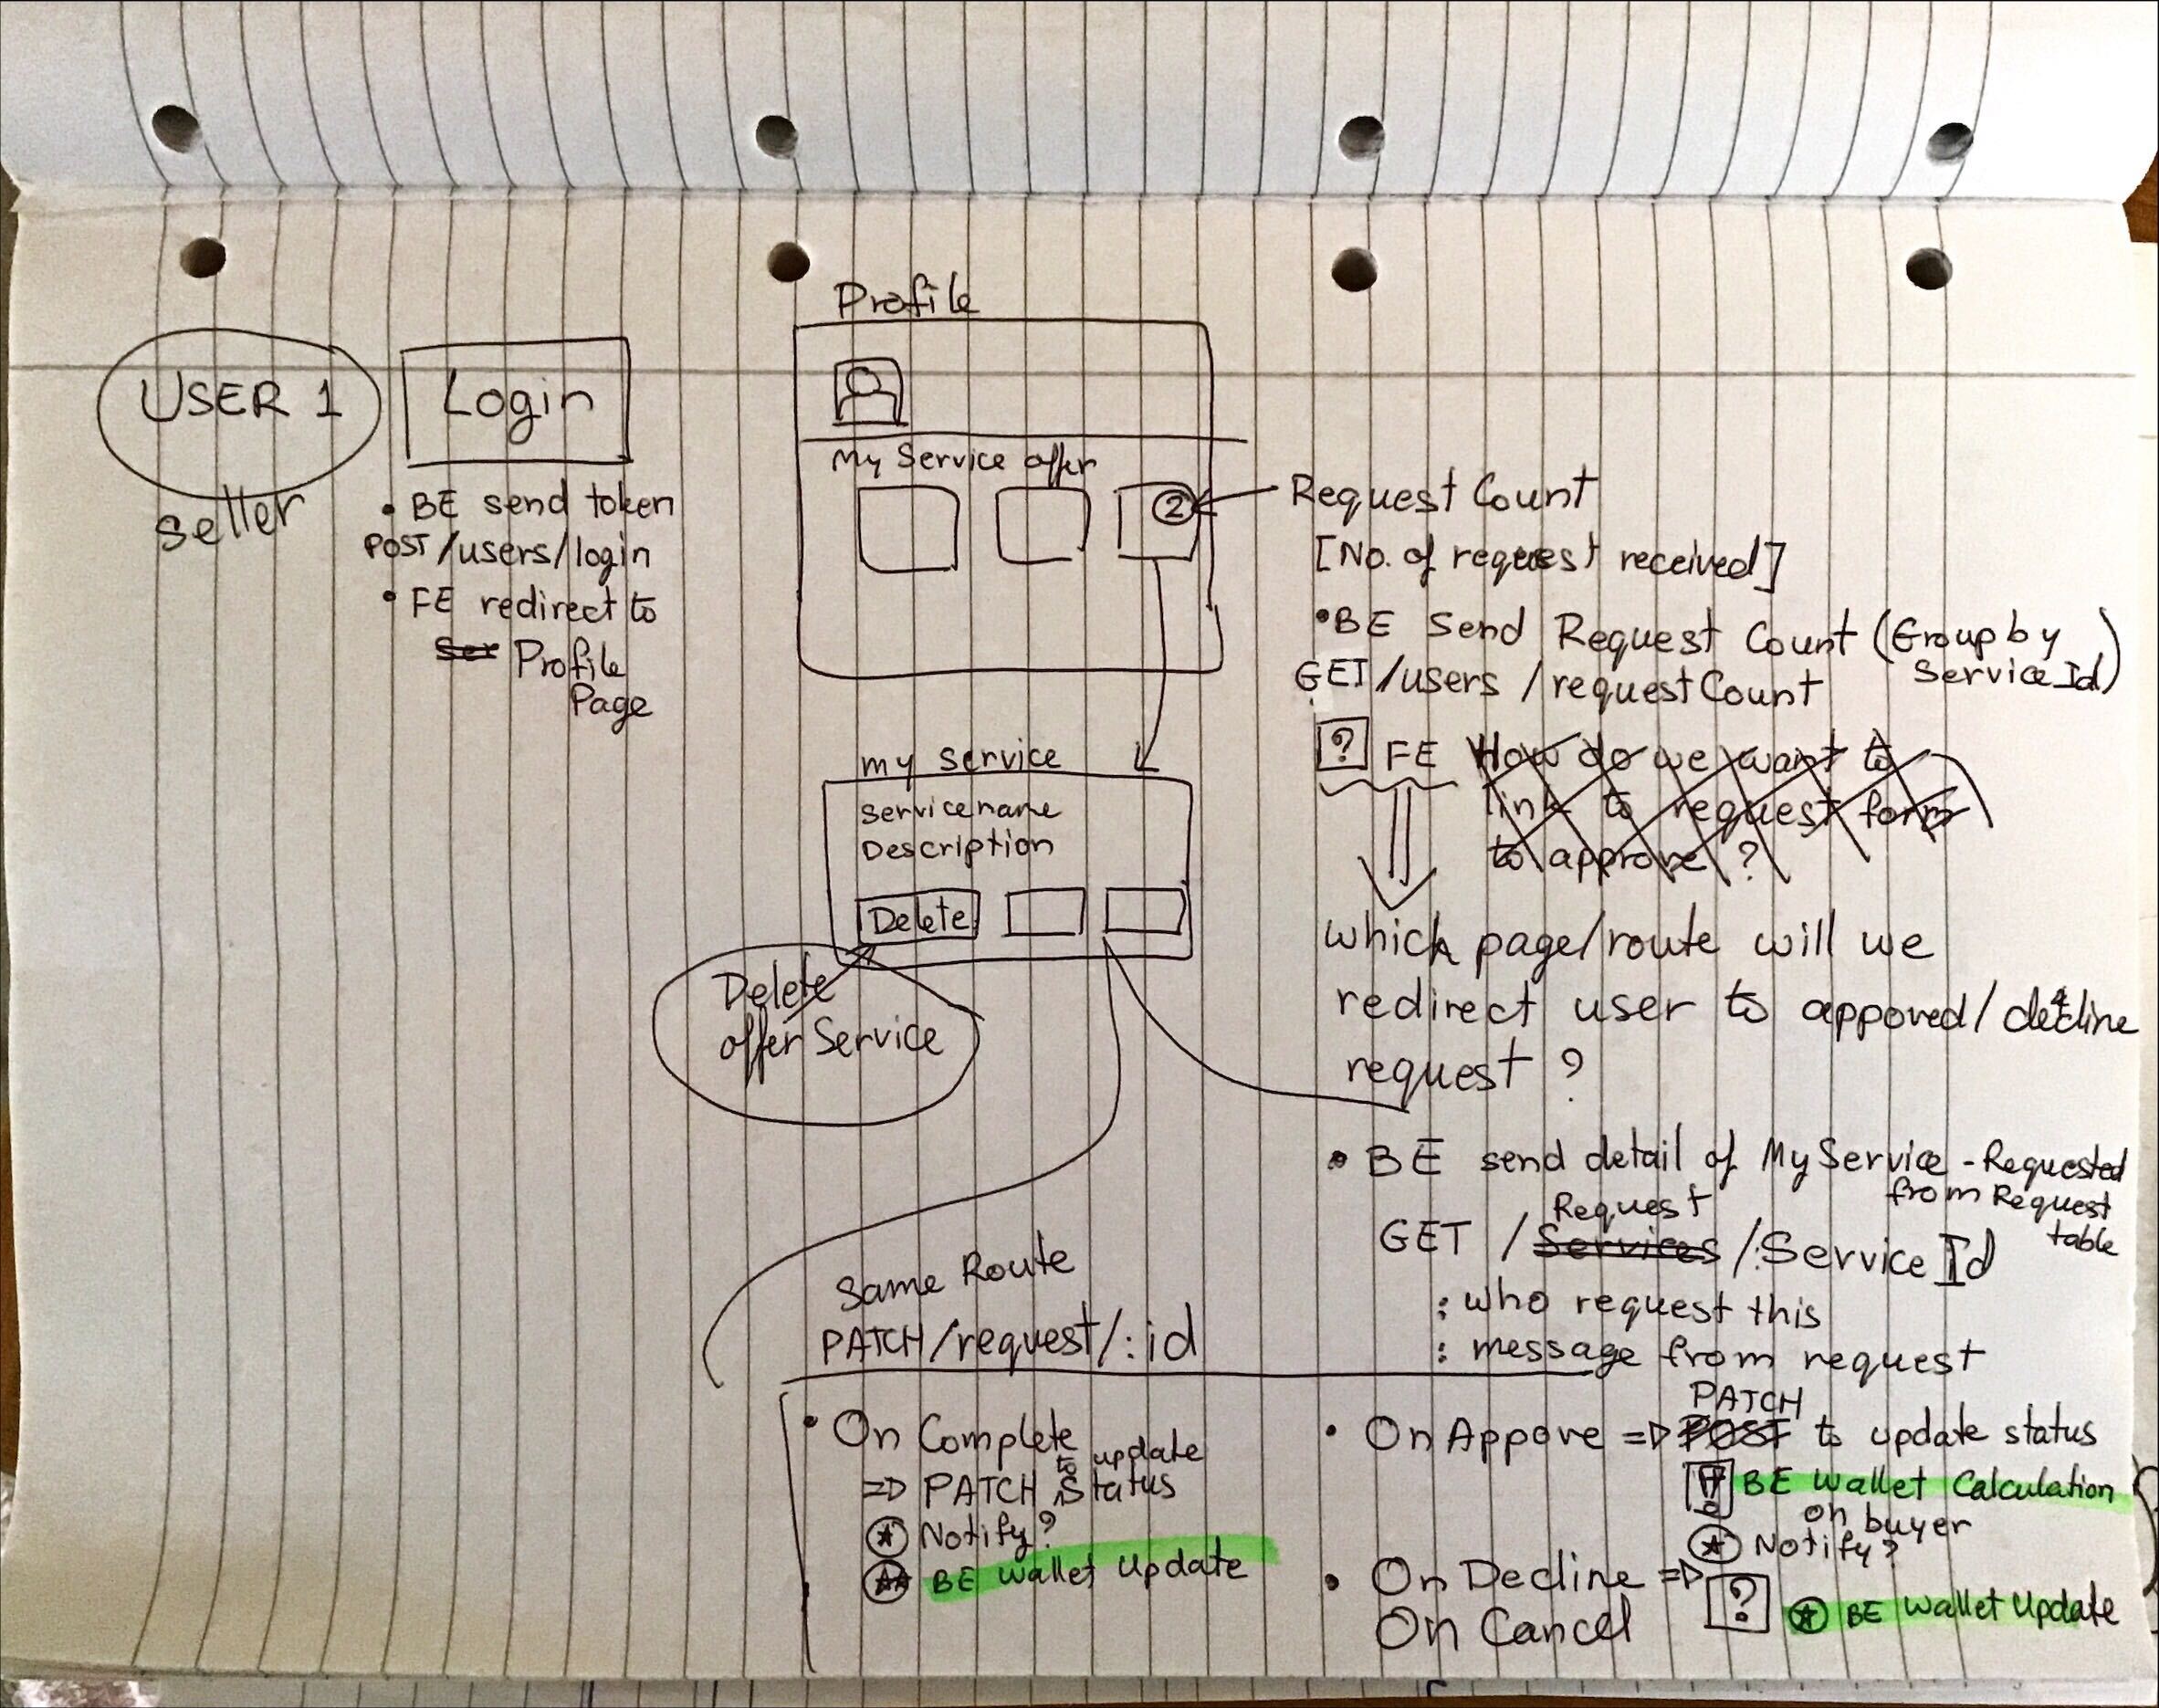 USER 1
seller
Login
• BE send token
POST /users/login
• FE redirect to
Ser Profile
Page
Profile
My Service offer
2
Request Count
[No. of request received]
• BE Send Request Count (Group by
Service Id)
GET /users /requestCount
? FE How do we want to
link to request form
to approve ?
which page/route will we
redirect user to appoved/decline
request ?
my service
Service name
Description
Delete
Delete
offer Service
• BE send detail of My Service - Requested
from Request
table
Request
GET /Services /:Service Id
: who request this
: message from request
Same Route
PATCH /request/:id
• On Complete
to update
=> PATCH Status
Notify?
BE Wallet Update
PATCH
• On Appove => POST to update status
BE Wallet Calculation
on buyer
Notify?
• On Decline =>
On Cancel
? BE Wallet Update